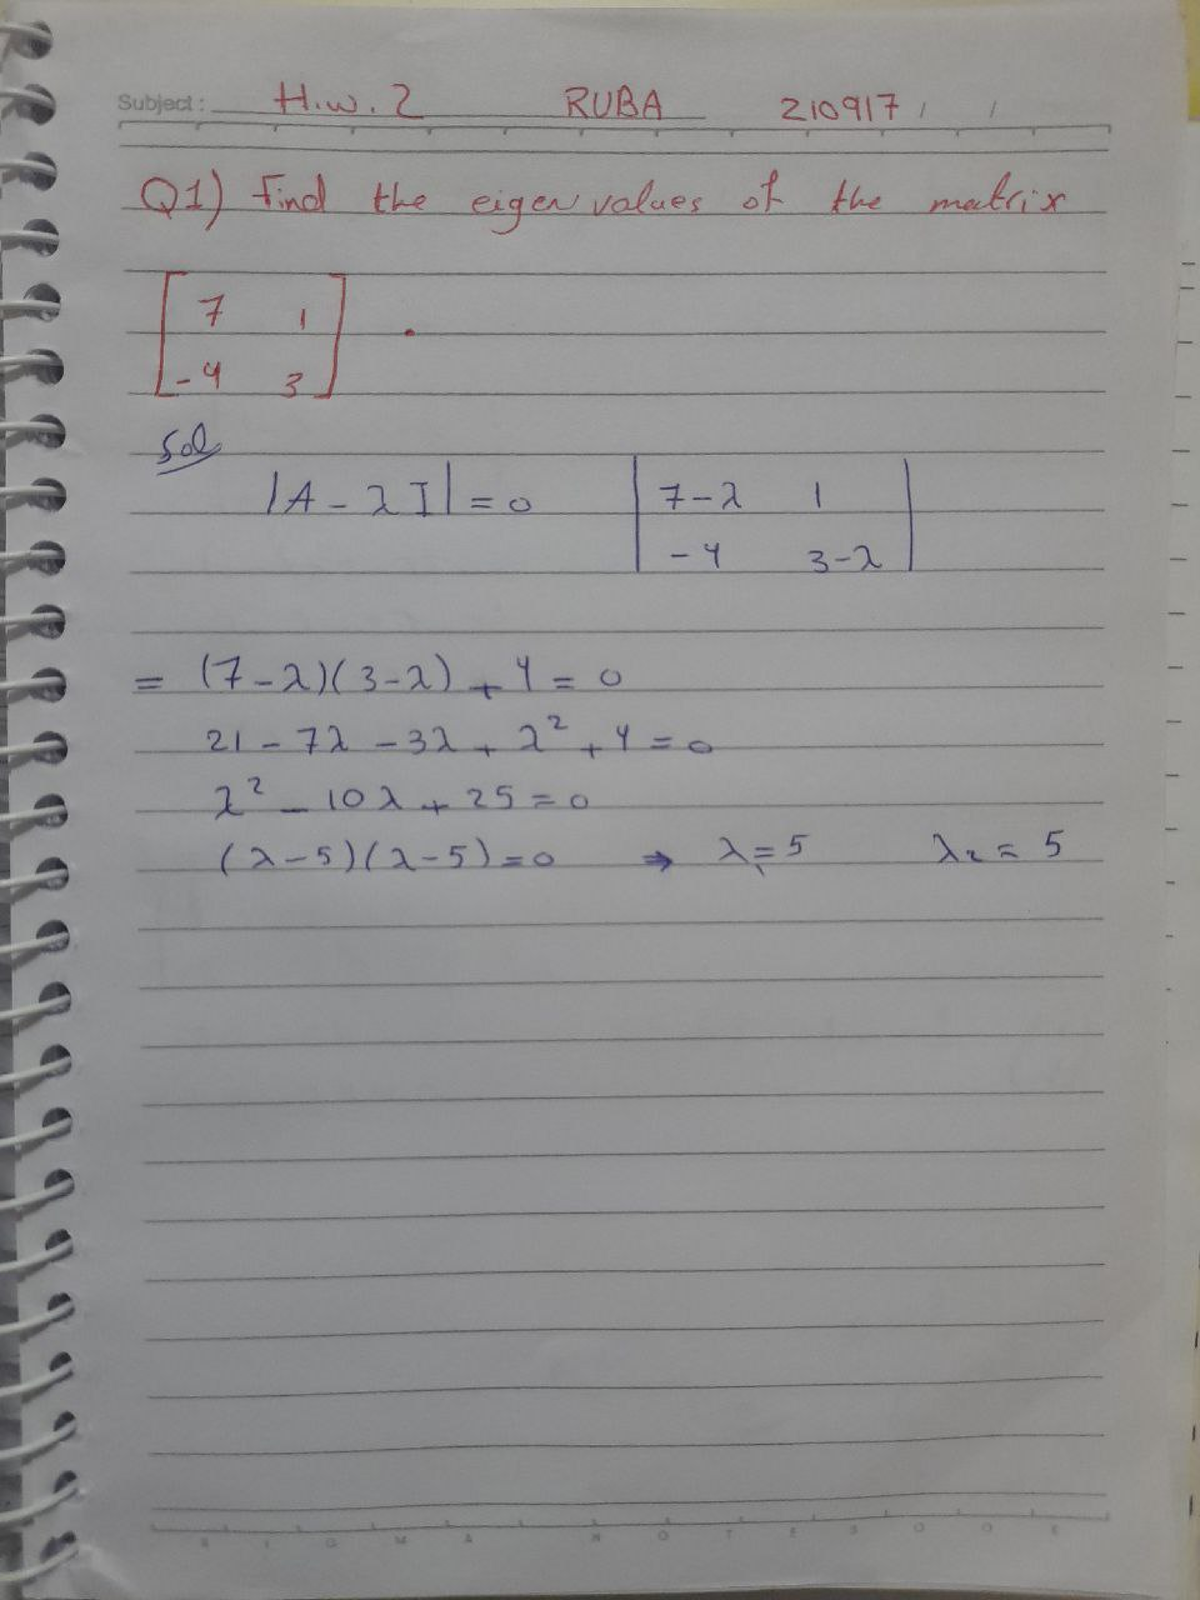 Subject: H.w. 2 RUBA 210917 / /
Q1) Find the eigen values of the matrix
[ 7 1
-4 3 ] .
Sol
|A - λI| = 0 | 7-λ 1
-4 3-λ |
= (7-λ)(3-λ) + 4 = 0
21 - 7λ - 3λ + λ² + 4 = 0
λ² - 10λ + 25 = 0
(λ-5)(λ-5) = 0 ⇒ λ₁ = 5 λ₂ = 5